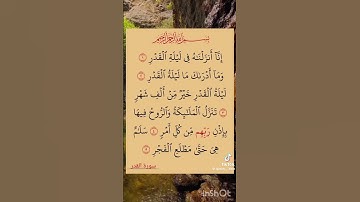 بسم الله الرحمن الرحيم
إِنَّآ أَنزَلْنَٰهُ فِى لَيْلَةِ ٱلْقَدْرِ ١
وَمَآ أَدْرَىٰكَ مَا لَيْلَةُ ٱلْقَدْرِ ٢
لَيْلَةُ ٱلْقَدْرِ خَيْرٌ مِّنْ أَلْفِ شَهْرٍ
٣ تَنَزَّلُ ٱلْمَلَٰٓئِكَةُ وَٱلرُّوحُ فِيهَا
بِإِذْنِ رَبِّهِم مِّن كُلِّ أَمْرٍ ٤ سَلَٰمٌ
هِىَ حَتَّىٰ مَطْلَعِ ٱلْفَجْرِ ٥
سورة القدر
InShOt